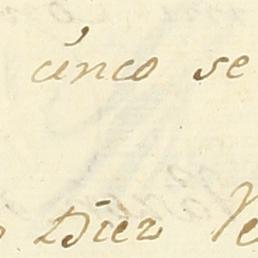 cinco se
Diez Ve